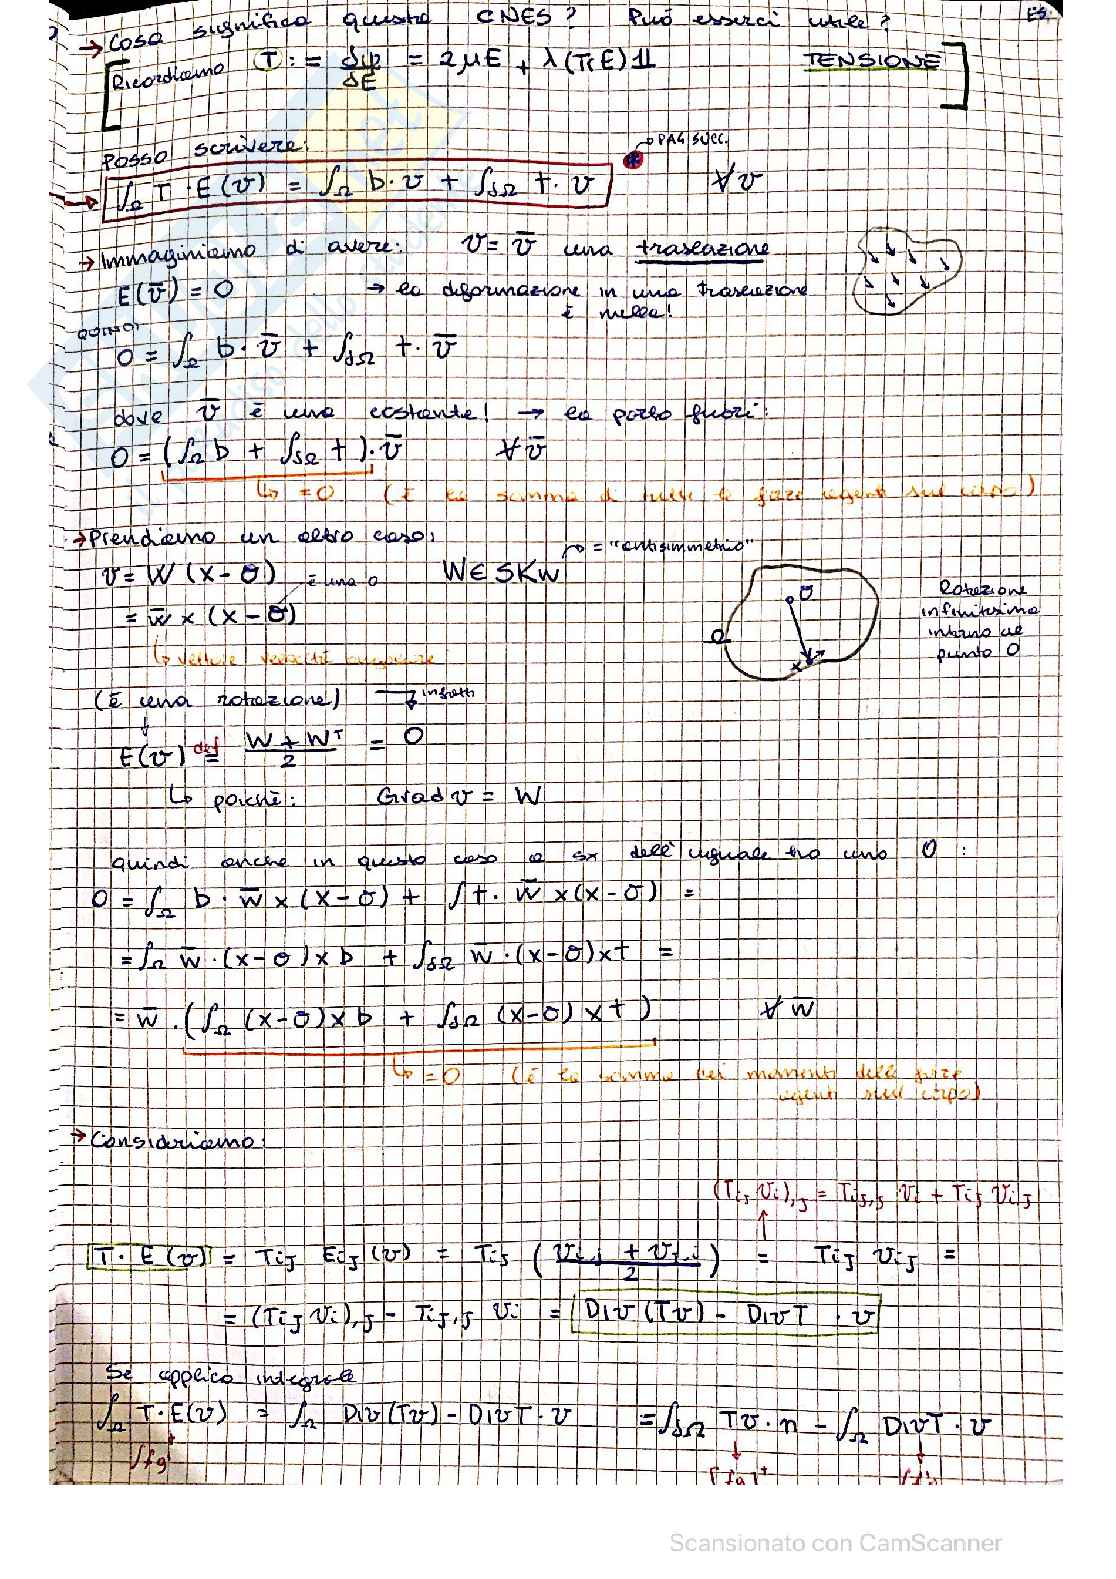 → Cosa significa questa CNES? Può esserci utile? ES.
Ricordiamo T := δψ/δE = 2μE + λ(TrE)𝟙 TENSIONE
Posso scrivere: * → PAG SUCC.
∫Ω T · E(v) = ∫Ω b · v + ∫δΩ t · v ∀v
→ Immaginiamo di avere: v = v̄ una traslazione
E(v̄) = 0 → la deformazione in una traslazione
è nulla!
QUINDI
0 = ∫Ω b · v̄ + ∫δΩ t · v̄
dove v̄ è una costante! → la porto fuori:
0 = (∫Ω b + ∫δΩ t) · v̄ ∀v̄
↳ = 0 (È la somma di tutte le forze agenti sul corpo)
→ Prendiamo un altro caso:
v = W (x - O) è una o W ∈ SKW → = "antisimmetrico"
= w̄ × (x - O)
↳ vettore velocità angolare
O
Ω
x
Rotazione
infinitesima
intorno al
punto O
(È una rotazione) infatti
E(v) def= (W + Wᵀ)/2 = 0
↳ poiché: Grad v = W
quindi anche in questo caso a sx dell'uguale ho uno 0:
0 = ∫Ω b · w̄ × (x - O) + ∫ t · w̄ × (x - O) =
= ∫Ω w̄ · (x - O) × b + ∫δΩ w̄ · (x - O) × t =
= w̄ · (∫Ω (x - O) × b + ∫δΩ (x - O) × t) ∀w̄
↳ = 0 (È la somma dei momenti delle forze
agenti sul corpo)
→ Consideriamo:
(Tij vi),j = Tij,j vi + Tij vi,j
T · E(v) = Tij Eij(v) = Tij ((vi,j + vj,i)/2) = Tij vi,j =
= (Tij vi),j - Tij,j vi = Div(Tv) - DivT · v
Se applico integrale
∫Ω T · E(v) = ∫Ω Div(Tv) - DivT · v = ∫δΩ Tv · n - ∫Ω DivT · v
Scansionato con CamScanner